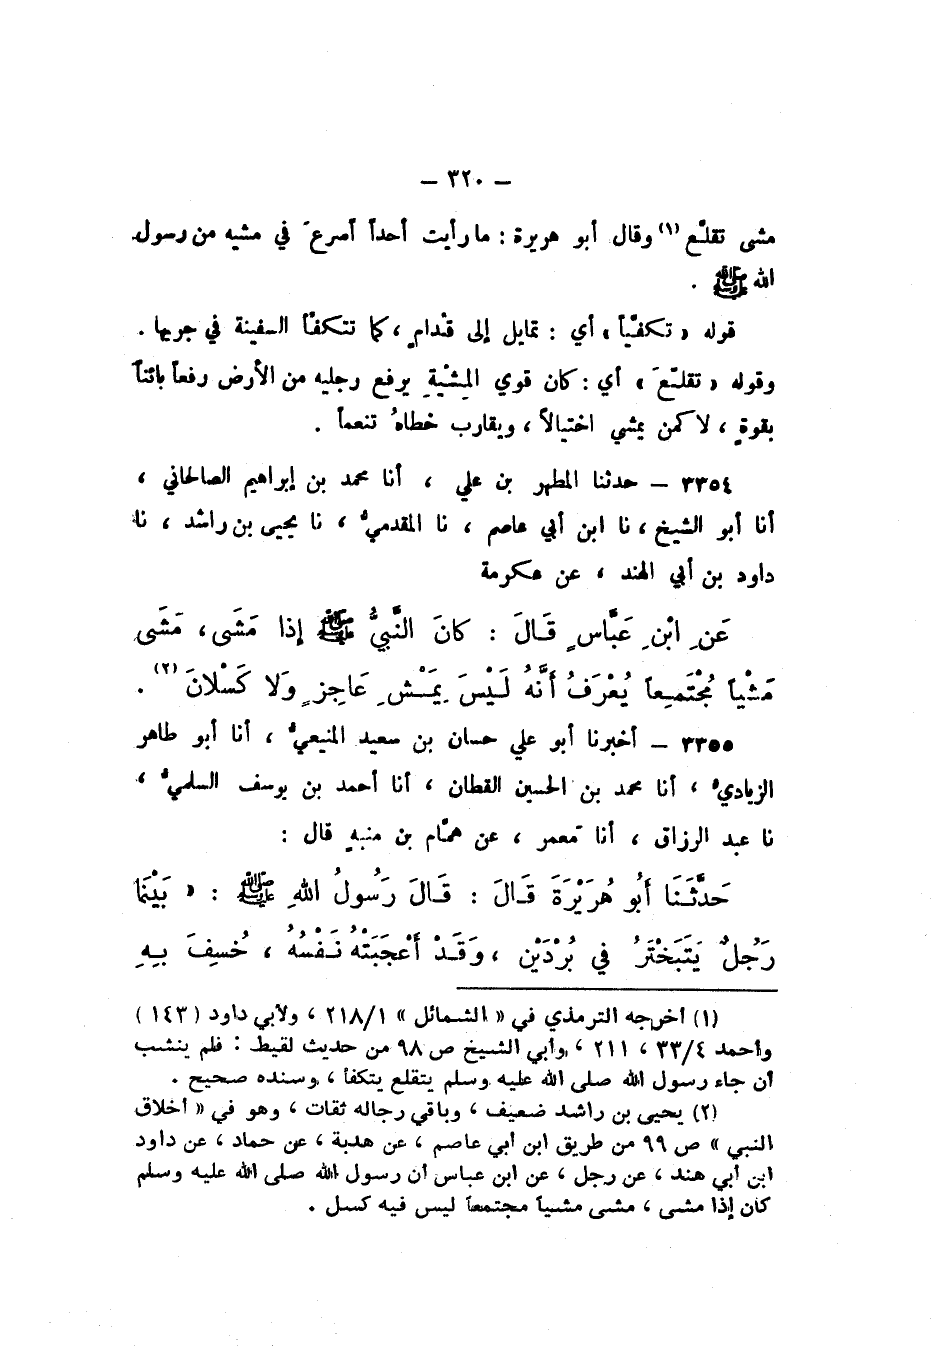 – ٣٢٠ –
مشى تقلّع (١) وقال أبو هريرة : ما رأيت أحداً أسرعَ في مشيه من رسول
الله ﷺ .
قوله « تكفّياً » أي : تمايل إلى قدامٍ ، كما تتكفّأ السفينة في جريها .
وقوله « تقلّعَ » أي : كان قوي المِشْيَةِ يرفع رجليه من الأرض رفعاً بائناً
بقوةٍ ، لا كمن يمشي اختيالاً ، ويقارب خطاهُ تنعماً .
٣٣٥٤ – حدثنا المطهر بن علي ، أنا محمد بن إبراهيم الصالحاني ،
أنا أبو الشيخ ، نا ابن أبي عاصم ، نا المقدميُّ ، نا يحيى بن راشد ، نا
داود بن أبي الهند ، عن عكرمة
عَنِ ابْنِ عَبَّاسٍ قَالَ : كَانَ النَّبِيُّ ﷺ إذا مَشَى ، مَشَى
مَشْياً مُجْتَمِعاً يُعْرَفُ أَنَّهُ لَيْسَ بِمَشْيِ عَاجِزٍ وَلا كَسْلانَ (٢) .
٣٣٥٥ – أخبرنا أبو علي حسان بن سعيد المنيعيُّ ، أنا أبو طاهر
الزياديُّ ، أنا محمد بن الحسين القطان ، أنا أحمد بن يوسف السلميُّ ،
نا عبد الرزاق ، أنا مَعمر ، عن همّام بن منبهٍ قال :
حَدَّثَنَا أَبُو هُرَيْرَةَ قَالَ : قَالَ رَسُولُ اللهِ ﷺ : « بَيْنَمَا
رَجُلٌ يَتَبَخْتَرُ في بُرْدَيْنِ ، وَقَدْ أَعْجَبَتْهُ نَفْسُهُ ، خُسِفَ بِهِ
(١) أخرجه الترمذي في « الشمائل » ٢١٨/١ ، ولأبي داود ( ١٤٣ )
وأحمد ٣٣/٤ ، ٢١١ ، وأبي الشيخ ص ٩٨ من حديث لقيط : فلم ينشب
أن جاء رسول الله صلى الله عليه وسلم يتقلع يتكفأ ، وسنده صحيح .
(٢) يحيى بن راشد ضعيف ، وباقي رجاله ثقات ، وهو في « أخلاق
النبي » ص ٩٩ من طريق ابن أبي عاصم ، عن هدبة ، عن حماد ، عن داود
ابن أبي هند ، عن رجل ، عن ابن عباس أن رسول الله صلى الله عليه وسلم
كان إذا مشى ، مشى مشياً مجتمعاً ليس فيه كسل .